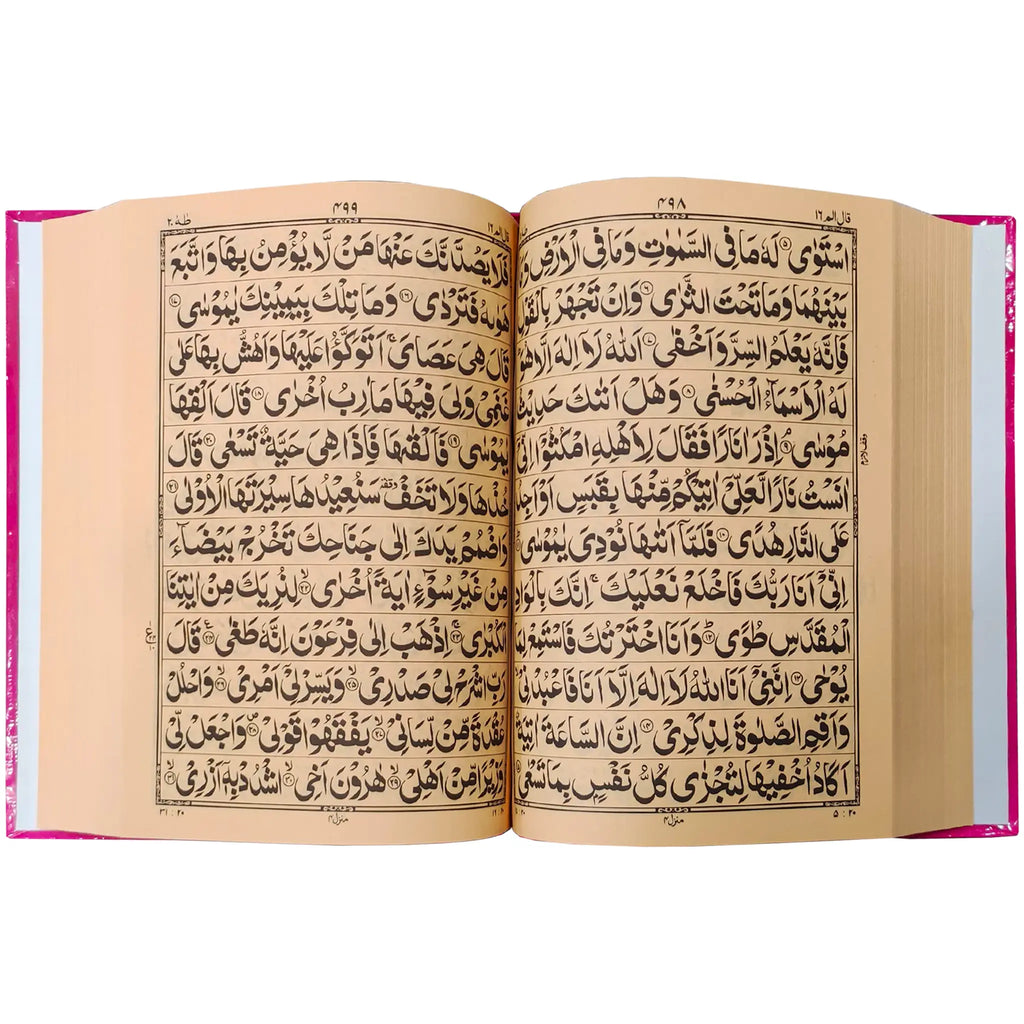 قال الم ١٦ ۴۹۸
اسْتَوٰى ۝۵ لَهٗ مَا فِى السَّمٰوٰتِ وَمَا فِى الْاَرْضِ
بَيْنَهُمَا وَمَا تَحْتَ الثَّرٰى ۝۶ وَاِنْ تَجْهَرْ بِالْقَوْلِ
فَاِنَّهٗ يَعْلَمُ السِّرَّ وَاَخْفٰى ۝۷ اَللّٰهُ لَاۤ اِلٰهَ اِلَّا هُوَ
لَهُ الْاَسْمَآءُ الْحُسْنٰى ۝۸ وَهَلْ اَتٰىكَ حَدِيْثُ
مُوْسٰى ۝۹ اِذْ رَاٰ نَارًا فَقَالَ لِاَهْلِهِ امْكُثُوْۤا اِنِّىْۤ
اٰنَسْتُ نَارًا لَّعَلِّىْۤ اٰتِيْكُمْ مِّنْهَا بِقَبَسٍ اَوْ اَجِدُ
عَلَى النَّارِ هُدًى ۝۱۰ فَلَمَّاۤ اَتٰىهَا نُوْدِىَ يٰمُوْسٰى
اِنِّىْۤ اَنَا رَبُّكَ فَاخْلَعْ نَعْلَيْكَ ۚ اِنَّكَ بِالْوَادِ
الْمُقَدَّسِ طُوًى ۝۱۲ وَاَنَا اخْتَرْتُكَ فَاسْتَمِعْ لِمَا
يُوْحٰى ۝۱۳ اِنَّنِىْۤ اَنَا اللّٰهُ لَاۤ اِلٰهَ اِلَّاۤ اَنَا فَاعْبُدْنِىْ
وَاَقِمِ الصَّلٰوةَ لِذِكْرِىْ ۝۱۴ اِنَّ السَّاعَةَ اٰتِيَةٌ
اَكَادُ اُخْفِيْهَا لِتُجْزٰى كُلُّ نَفْسٍ ۢ بِمَا تَسْعٰى
وقف لازم
۲۰ : ۵ منزل ۴
۴۹۹ طٰهٰ ۲۰
فَلَا يَصُدَّنَّكَ عَنْهَا مَنْ لَّا يُؤْمِنُ بِهَا وَاتَّبَعَ
هَوٰىهُ فَتَرْدٰى ۝۱۶ وَمَا تِلْكَ بِيَمِيْنِكَ يٰمُوْسٰى ۝۱۷
قَالَ هِىَ عَصَاىَ ۚ اَتَوَكَّؤُا عَلَيْهَا وَاَهُشُّ بِهَا عَلٰى
غَنَمِىْ وَلِىَ فِيْهَا مَاٰرِبُ اُخْرٰى ۝۱۸ قَالَ اَلْقِهَا
يٰمُوْسٰى ۝۱۹ فَاَلْقٰىهَا فَاِذَا هِىَ حَيَّةٌ تَسْعٰى ۝۲۰ قَالَ
خُذْهَا وَلَا تَخَفْ ۥ وقفة سَنُعِيْدُهَا سِيْرَتَهَا الْاُوْلٰى ۝۲۱
وَاضْمُمْ يَدَكَ اِلٰى جَنَاحِكَ تَخْرُجْ بَيْضَآءَ
مِنْ غَيْرِ سُوْٓءٍ اٰيَةً اُخْرٰى ۝۲۲ لِنُرِيَكَ مِنْ اٰيٰتِنَا
الْكُبْرٰى ۝۲۳ اِذْهَبْ اِلٰى فِرْعَوْنَ اِنَّهٗ طَغٰى ۝۲۴ قَالَ
رَبِّ اشْرَحْ لِىْ صَدْرِىْ ۝۲۵ وَيَسِّرْ لِىْۤ اَمْرِىْ ۝۲۶ وَاحْلُلْ
عُقْدَةً مِّنْ لِّسَانِىْ ۝۲۷ يَفْقَهُوْا قَوْلِىْ ۝۲۸ وَاجْعَلْ لِّىْ
وَزِيْرًا مِّنْ اَهْلِىْ ۝۲۹ هٰرُوْنَ اَخِىْ ۝۳۰ اشْدُدْ بِهٖۤ اَزْرِىْ ۝۳۱
منزل ۴ ۲۰ : ۳۱